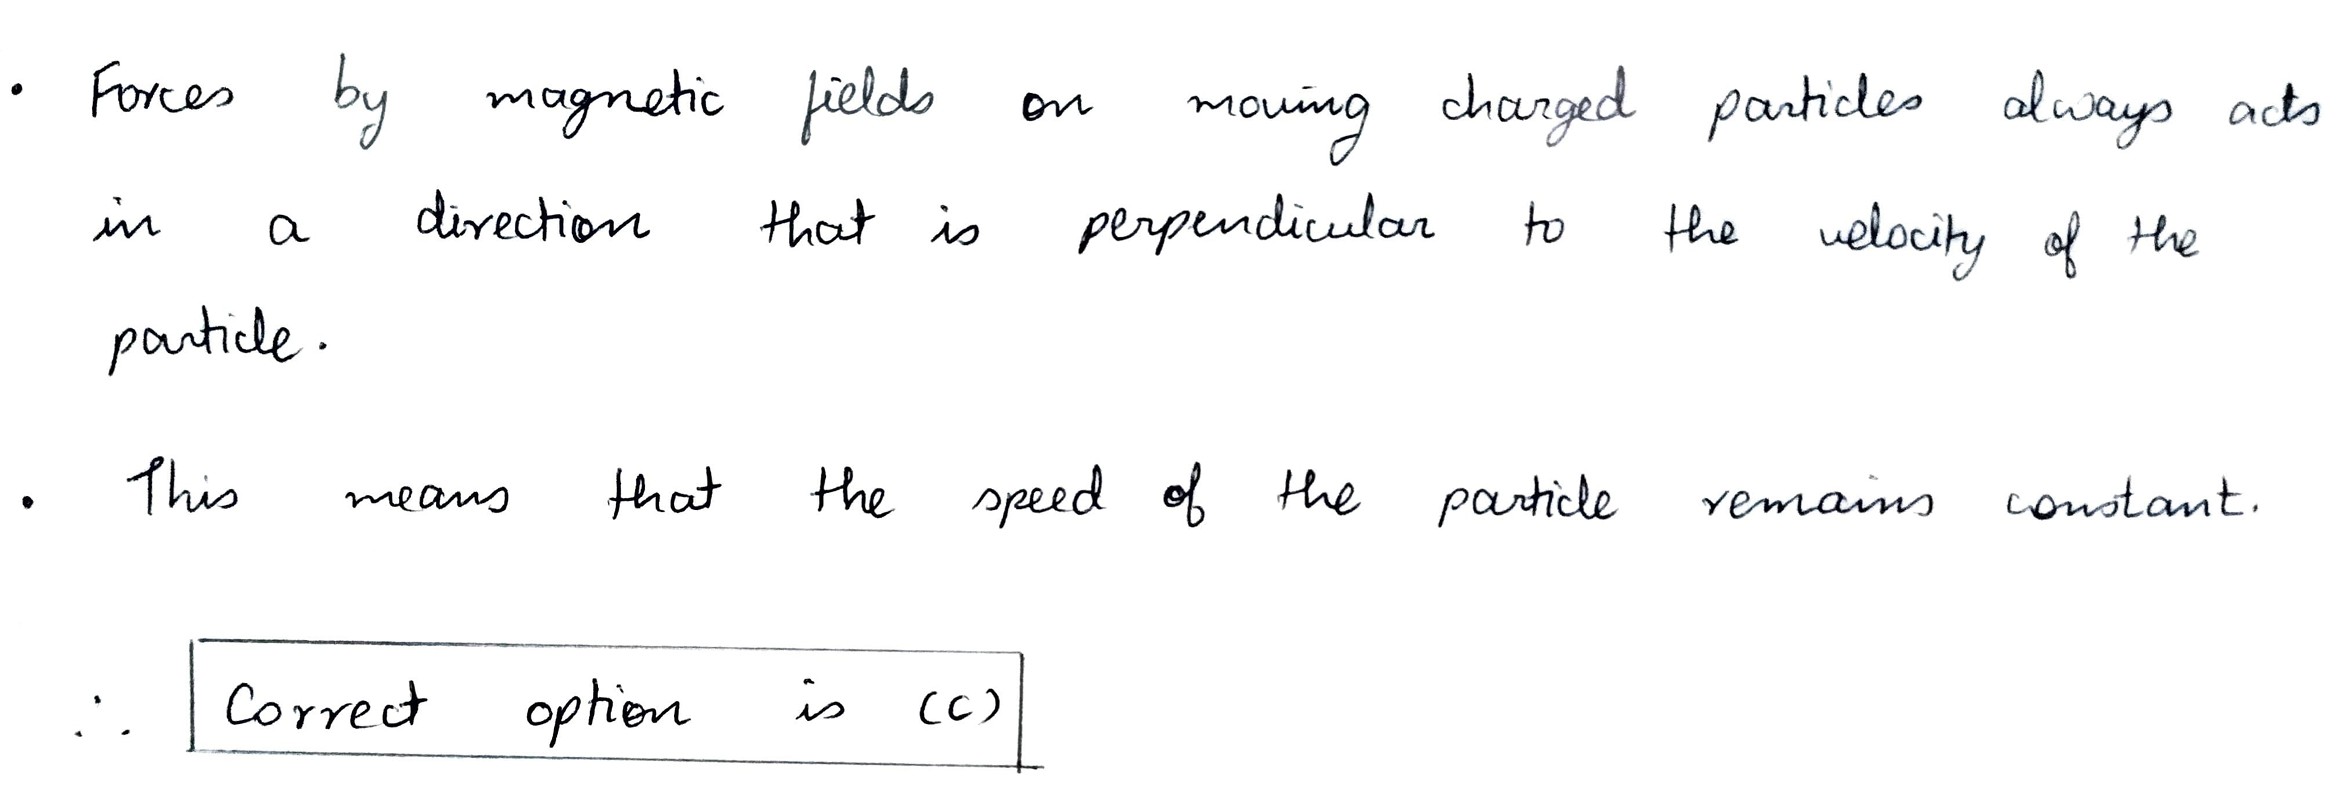 • Forces by magnetic fields on moving charged particles always acts
in a direction that is perpendicular to the velocity of the
particle.
• This means that the speed of the particle remains constant.
∴ Correct option is (C)